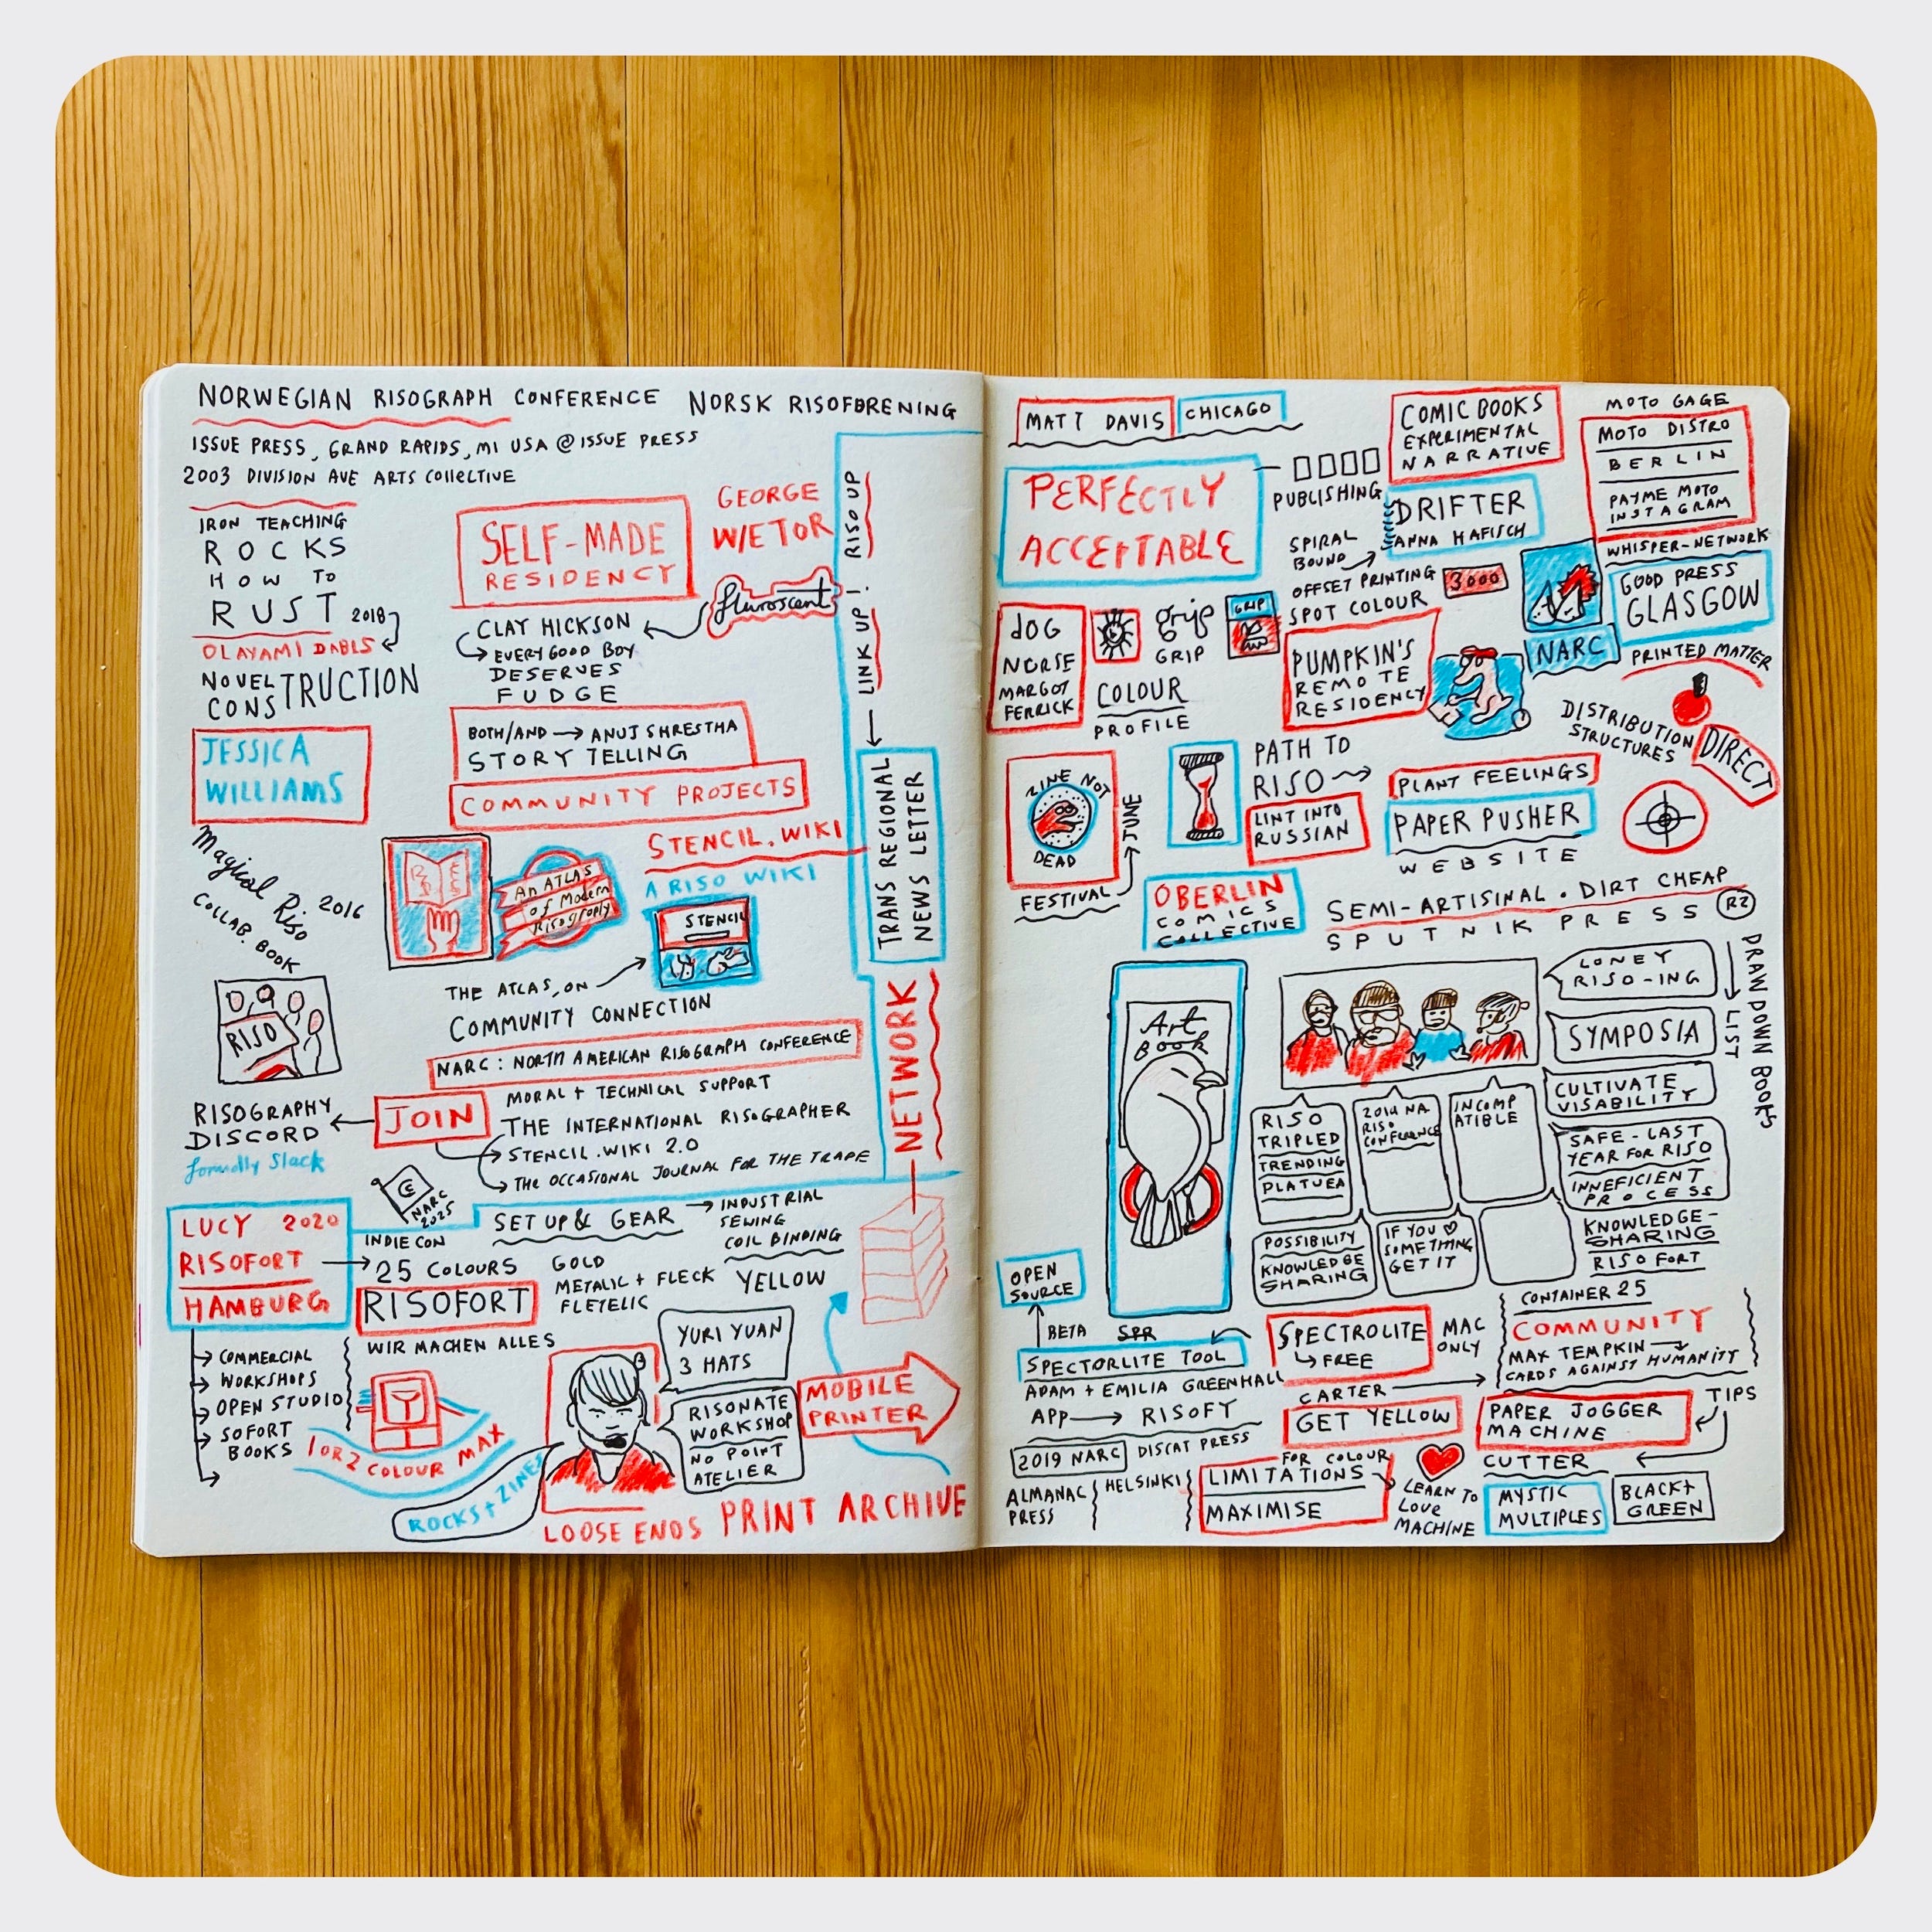 NORWEGIAN RISOGRAPH CONFERENCE NORSK RISOFØRENING
ISSUE PRESS, GRAND RAPIDS, MI USA @ ISSUE PRESS
2003 DIVISION AVE ARTS COLLECTIVE
IRON TEACHING
ROCKS
HOW TO
RUST 2018
OLAYAMI DABLS
NOVEL
CONSTRUCTION
JESSICA
WILLIAMS
Magical Riso 2016
COLLAB. BOOK
RISO
RISOGRAPHY
DISCORD
formally Slack
SELF-MADE
RESIDENCY
GEORGE
WIETOR
fluroscent
CLAY HICKSON
EVERY GOOD BOY
DESERVES
FUDGE
BOTH/AND → ANUJ SHRESTHA
STORY TELLING
COMMUNITY PROJECTS
STENCIL.WIKI
A RISO WIKI
An ATLAS
of Modern
Risography
STENCIL
THE ATLAS, ON
COMMUNITY CONNECTION
NARC: NORTH AMERICAN RISOGRAPH CONFERENCE
MORAL + TECHNICAL SUPPORT
JOIN
THE INTERNATIONAL RISOGRAPHER
STENCIL.WIKI 2.0
THE OCCASIONAL JOURNAL FOR THE TRAPE
LINK UP! RISO UP
TRANS REGIONAL
NEWS LETTER
NETWORK
NARC
2025
LUCY 2020
RISOFORT
HAMBURG
INDIE CON
25 COLOURS
RISOFORT
WIR MACHEN ALLES
SET UP & GEAR
INDUSTRIAL
SEWING
COIL BINDING
GOLD
METALIC + FLECK
FLETELIC
YELLOW
COMMERCIAL
WORKSHOPS
OPEN STUDIO
SOFORT
BOOKS
1 OR 2 COLOUR MAX
YURI YUAN
3 HATS
RISONATE
WORKSHOP
NO POINT
ATELIER
ROCKS + ZINES
MOBILE
PRINTER
LOOSE ENDS PRINT ARCHIVE
MATT DAVIS CHICAGO
PERFECTLY
ACCEPTABLE
PUBLISHING
COMIC BOOKS
EXPERIMENTAL
NARRATIVE
MOTO GAGE
MOTO DISTRO
BERLIN
PAYME MOTO
INSTAGRAM
DRIFTER
ANNA HAFISCH
SPIRAL
BOUND
OFFSET PRINTING 3000
SPOT COLOUR
WHISPER-NETWORK
GOOD PRESS
GLASGOW
NARC
PRINTED MATTER
DOG
NURSE
MARGOT
FERRICK
grip
GRIP
GRIP
COLOUR
PROFILE
PUMPKIN'S
REMOTE
RESIDENCY
DISTRIBUTION
STRUCTURES
DIRECT
ZINE NOT
DEAD
FESTIVAL
JUNE
PATH TO
RISO
LINT INTO
RUSSIAN
PLANT FEELINGS
PAPER PUSHER
WEBSITE
OBERLIN
COMICS
COLLECTIVE
SEMI-ARTISINAL. DIRT CHEAP
SPUTNIK PRESS R2
DRAW DOWN BOOKS
LIST
Art
Book
LONEY
RISO-ING
SYMPOSIA
CULTIVATE
VISABILITY
SAFE-LAST
YEAR FOR RISO
INNEFICIENT
PROCESS
KNOWLEDGE-
SHARING
RISO FORT
RISO
TRIPLED
TRENDING
PLATUEA
2014 NA
RISO
CONFERENCE
INCOMP
ATIBLE
POSSIBILITY
KNOWLEDGE
SHARING
IF YOU ♡
SOMETHING
GET IT
OPEN
SOURCE
BETA SPR
SPECTORLITE TOOL
ADAM + EMILIA GREENHALL
APP → RISOFY
2019 NARC DISCAT PRESS
ALMANAC
PRESS
HELSINKI
SPECTROLITE
FREE
MAC
ONLY
CONTAINER 25
COMMUNITY
MAX TEMPKIN
CARDS AGAINST HUMANITY
CARTER
GET YELLOW
FOR COLOUR
LIMITATIONS
MAXIMISE
LEARN TO
LOVE
MACHINE
PAPER JOGGER
MACHINE
TIPS
CUTTER
MYSTIC
MULTIPLES
BLACK +
GREEN